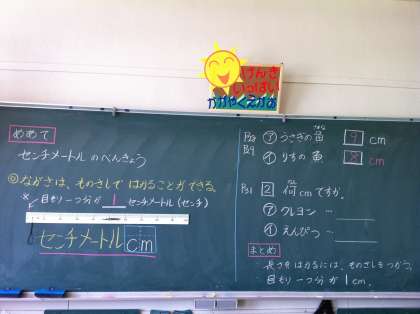 げんき
いっぱい
かがやくえがお
めあて
センチメートルのべんきょう
◎ながさは、ものさしではかることができる。
※ 目もり一つ分が 1 センチメートル(センチ)
センチメートル cm
P.8 ㋐ うさぎの 9 cm
P.9 ㋑ りすの 8 cm
2 何cmですか。
㋐ クレヨン …
㋑ えんぴつ …
まとめ
長さをはかるには、ものさしをつかう。
目もり一つ分が1cm.